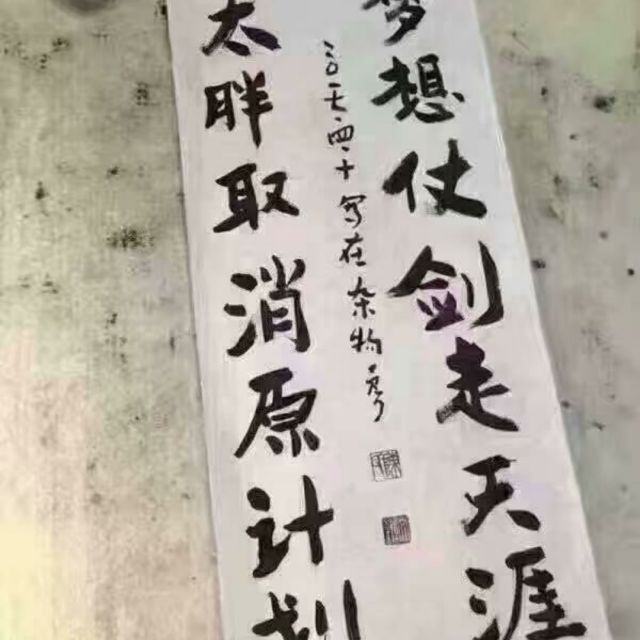 梦想仗剑走天涯
太胖取消原计划
二〇一七.四.十写在杂物房